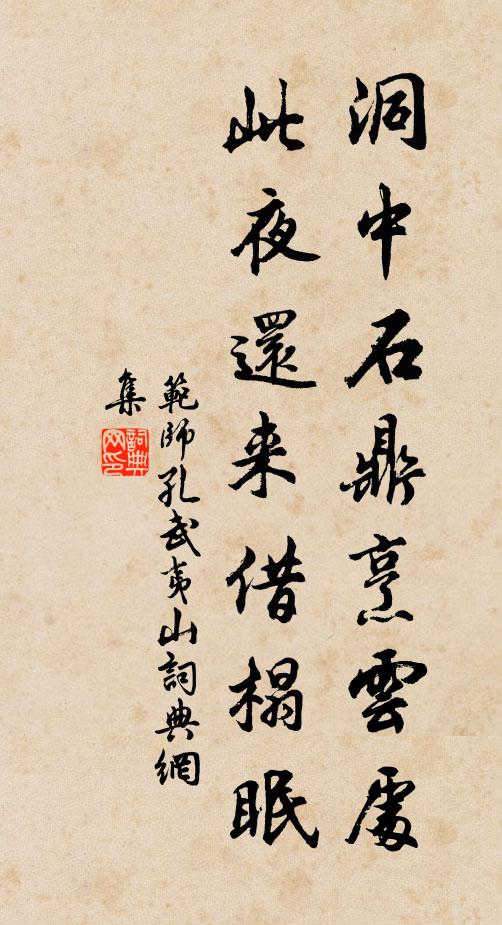 洞中石鼎烹雲處
此夜還来借榻眠
範師孔武夷山詞典網
集
詞典網印